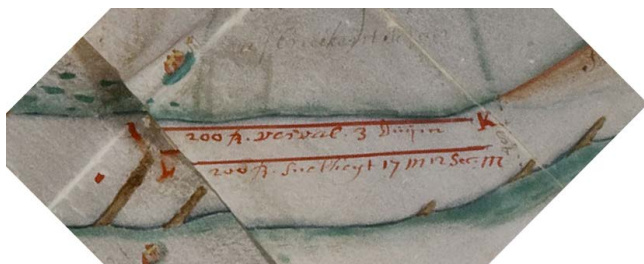 K
200 R. verval. 3 duijm
L
200 R. snelheyt 17 m 12 Sec. M